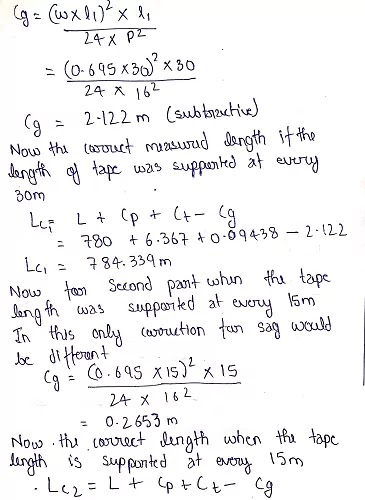 Cg = (w × l1)² × l1
24 × P²
= (0.695 × 30)² × 30
24 × 16²
Cg = 2.122 m (subtractive)
Now the correct measured length if the
length of tape was supported at every
30m
Lc1 = L + Cp + Ct - Cg
= 780 + 6.367 + 0.09438 - 2.122
Lc1 = 784.339m
Now for second part when the tape
length was supported at every 15m
In this only correction for sag would
be different
Cg = (0.695 × 15)² × 15
24 × 16²
= 0.2653 m
Now the correct length when the tape
length is supported at every 15m
. Lc2 = L + Cp + Ct - Cg